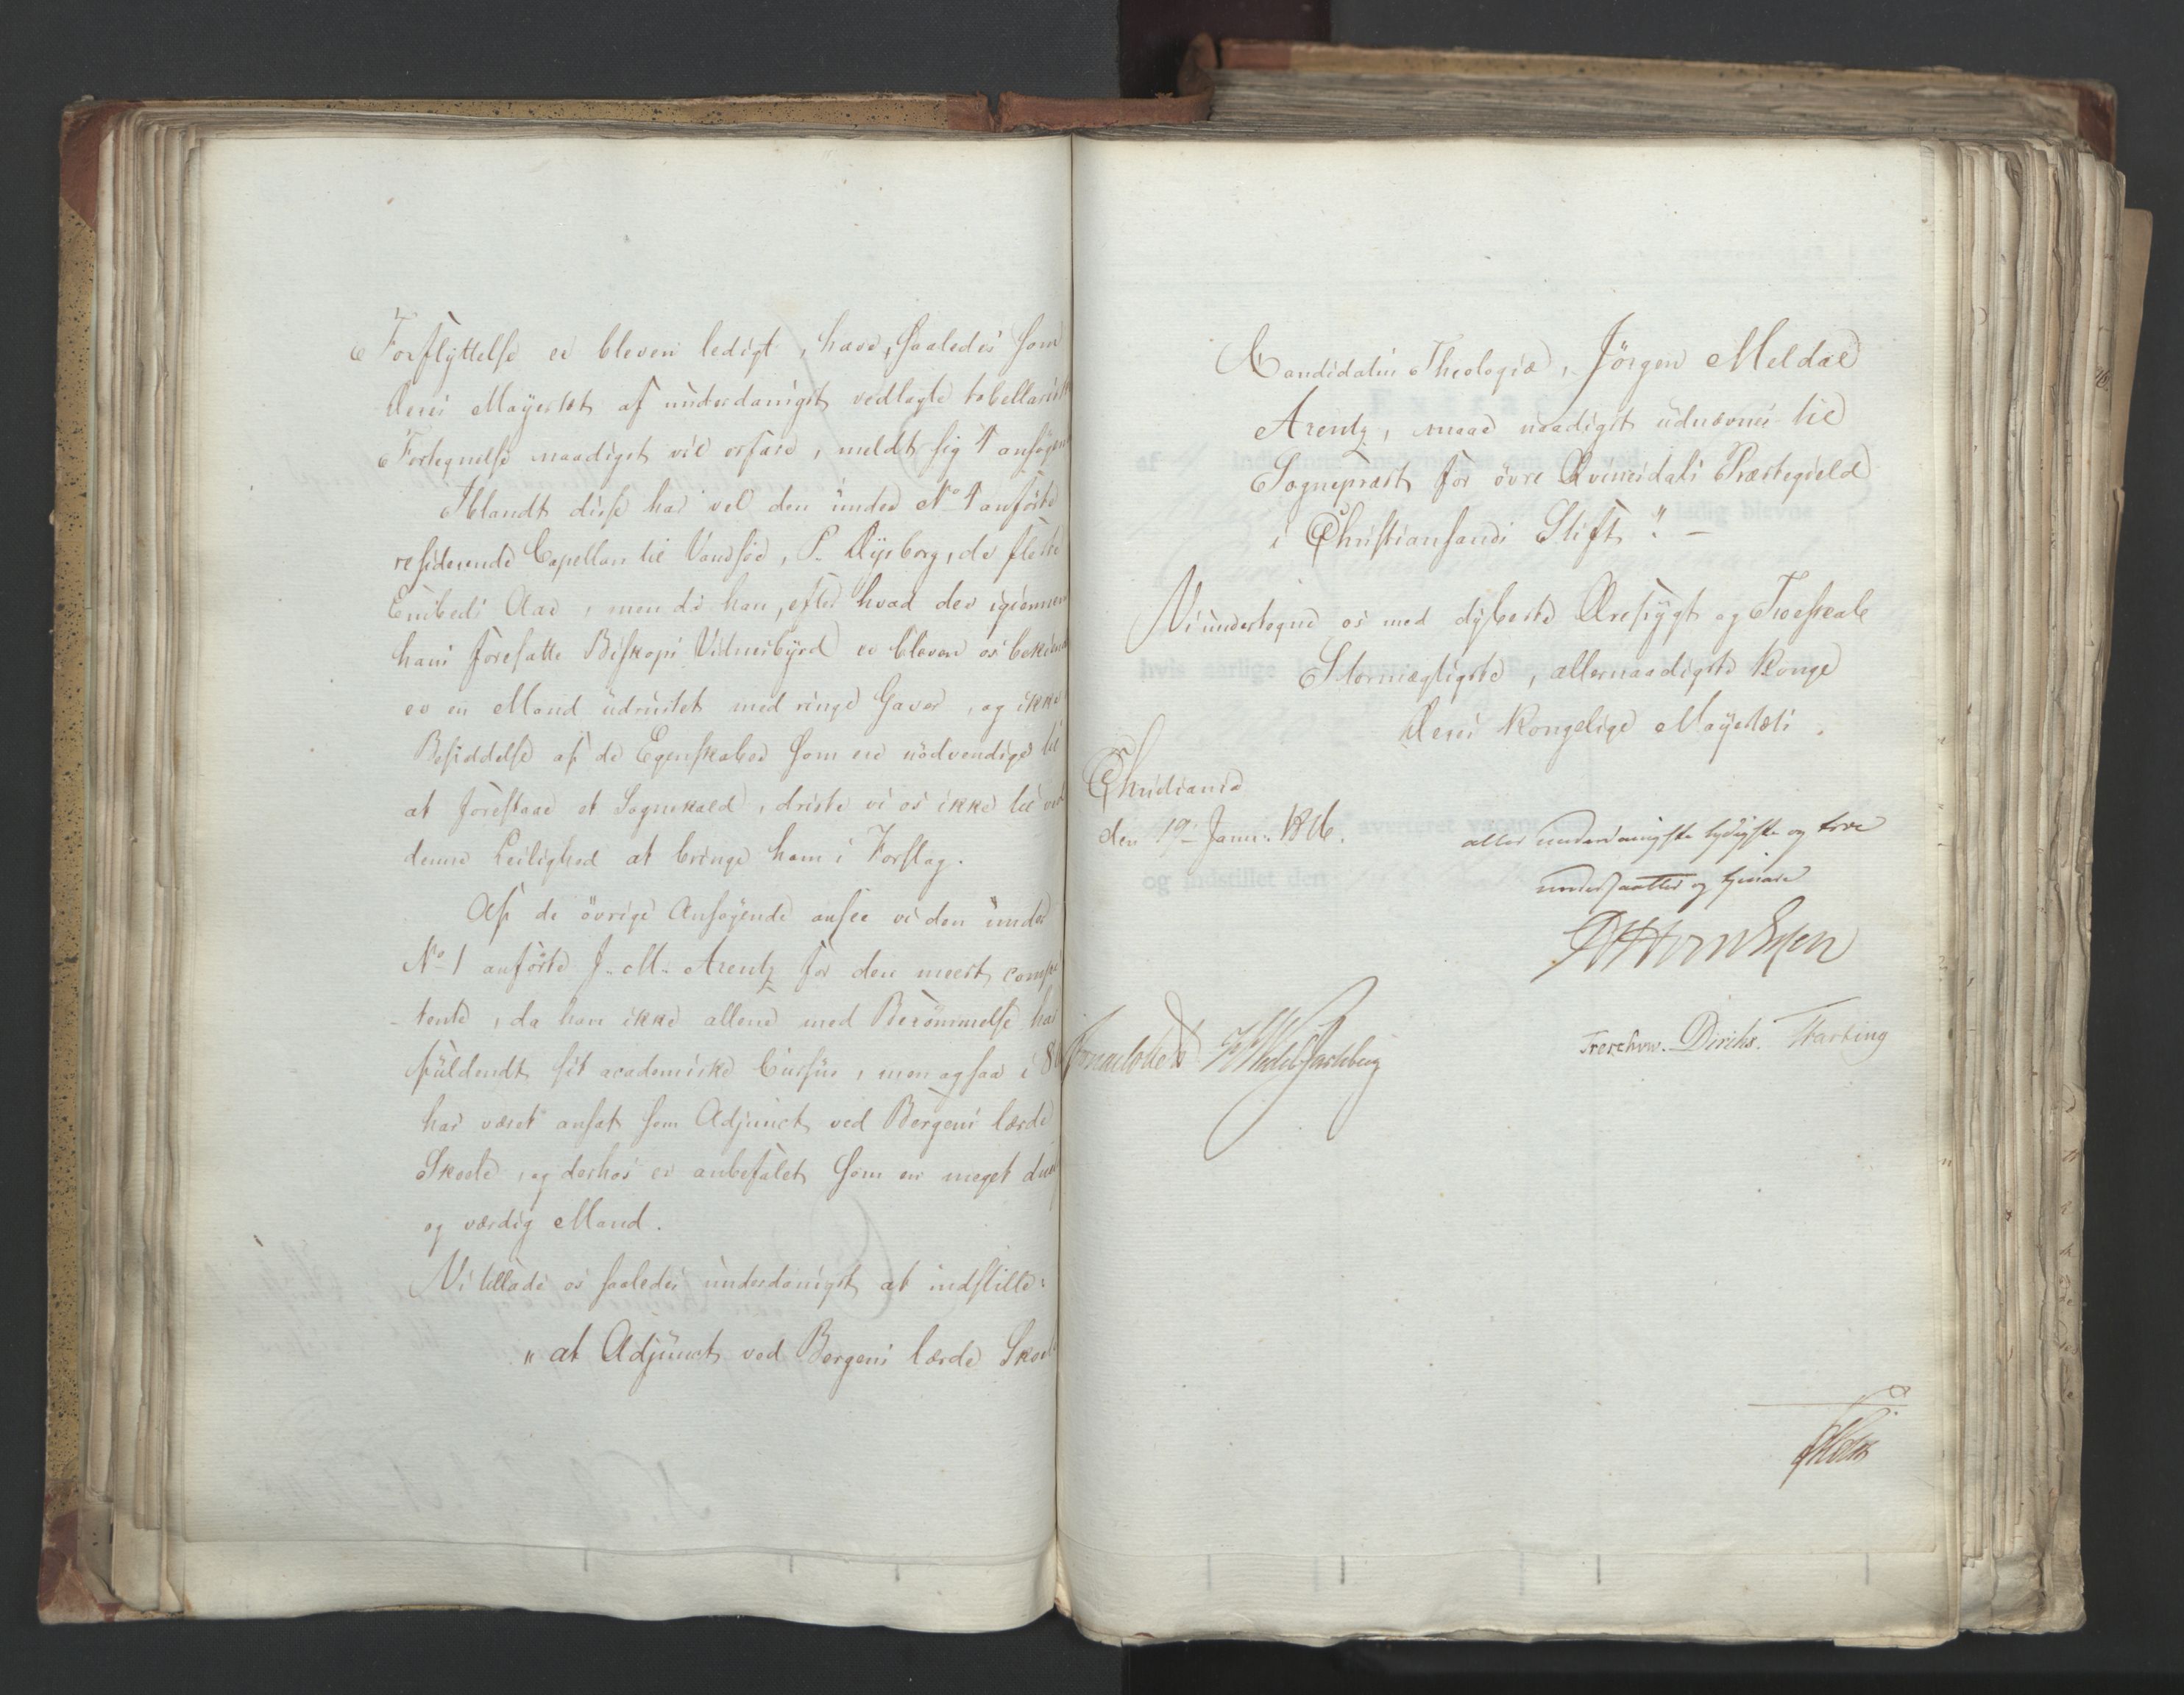 Forflyttelse er bleven ledigt, have, saaledes som
Deres Mayestæt af underdanigst vedlagte tabellarisk
Fortegnelse naadigst vil erfare, meldt sig 4 ansøgen
Iblandt disse har vel den under No 4 anførte
residerende Capellan til Vandsøe, P. Dysborg, de fleste
Embeds Aar, men da han, efter hvad der igiennem
hans foresatte Biskops Vidnesbyrd er bleven os bekiendt
er en Mand udrustet med ringe Gaver, og ikke
Besiddelse af de Egenskaber som ere nødvendige til
at forestaae et Sognekald, driste vi os ikke til ved
denne Leilighed at bringe ham i Forslag.
Af de øvrige Ansøgende ansee vi den under
No 1 anførte J. M. Arentz for den meest compe
-tente, da han ikke allene med Berømmelse har
fuldendt sit academiske Cursus, men ogsaa i 8
har været ansat som Adjunct ved Bergens lærde
Skole, og derhos er anbefalet som en meget due
og værdig Mand.
Vi tillade os saaledes underdanigst at indstille:
"at Adjunct ved Bergens lærde Skole
Candidatus Theologiæ, Jörgen Meldal
Arentz, maae naadigst udnævnes til
Sognepræst for övre Qvinesdals Præstegield
i Christiansands Stift". -
Vi undertegne os med dybeste Ærefrygt og Troeskab
Stormægtigste, allernaadigste Konge
Deres Kongelige Mayestæts.
Christiania
den 19de Janu. 1816.
aller underdanigste lydigste og troe
undersaatter og tjenere
Sommerhielm HWedel Jarlsberg
Treschow. Diriks. Harting